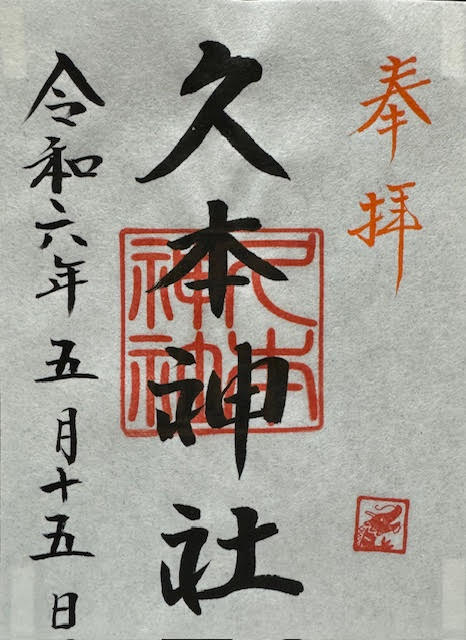 奉拝
久本神社
久本神社
令和六年五月十五日